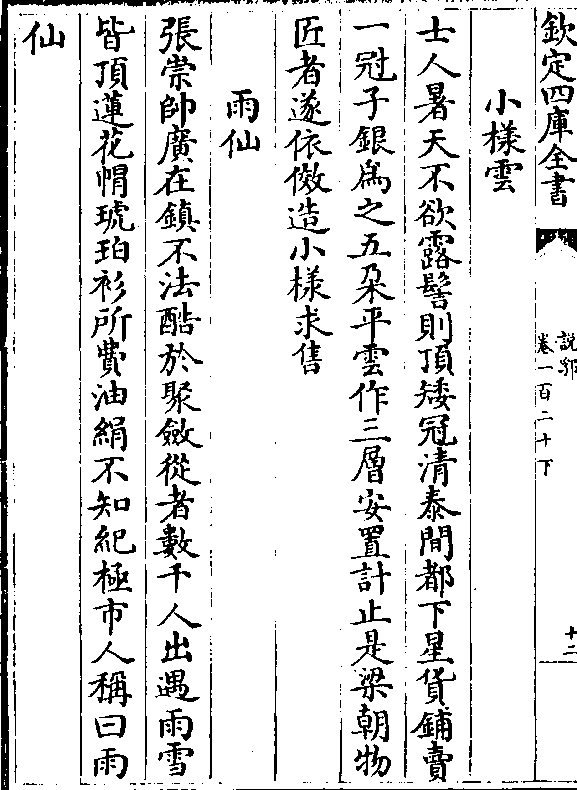 欽定四庫全書
說郛
卷一百二十下
十二
小樣雲
士人暑天不欲露髻則頂矮冠清泰間都下星貨鋪賣
一冠子銀為之五朶平雲作三層安置計止是梁朝物
匠者遂依倣造小樣求售
雨仙
張崇帥廣在鎮不法酷於聚斂從者數千人出遇雨雪
皆頂蓮花帽琥珀衫所費油絹不知紀極市人稱曰雨
仙